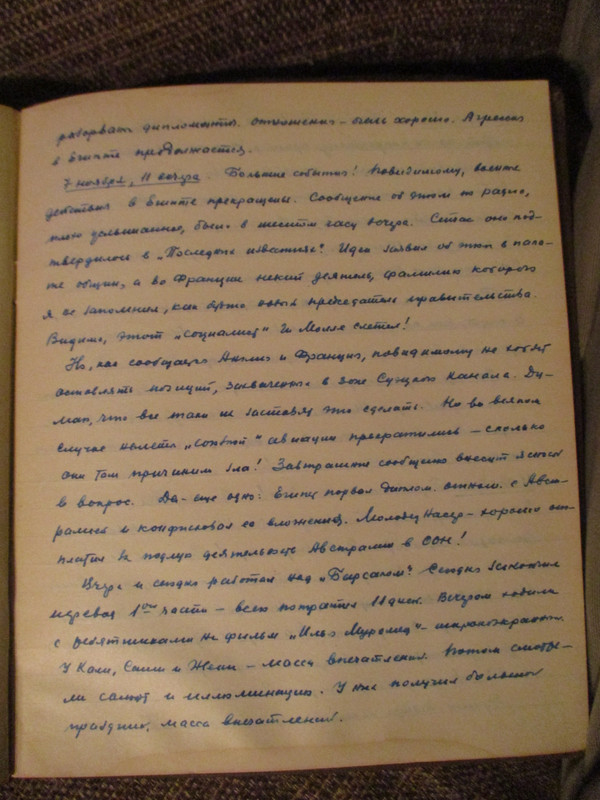 разорвать дипломатич. отношения – очень хорошо. Агрессия
в Египте продолжается.
7 ноября, 11 вечера. Большие события! Повидимому, военные
действия в Египте прекращены. Сообщение об этом по радио,
мною услышанное, было в шестом часу вечера. Сейчас оно под-
твердилось в „Последних известиях". Иден заявил об этом в пала-
те общин, а во Франции некий деятель, фамилию которого
я не запомнил, как будто новый председатель правительства.
Видимо, этот „социалист" Ги Молле слетел!
Но, как сообщается Англия и Франция, повидимому не хотят
оставлять позиций, захваченных в зоне Суэцкого канала. Ду-
маю, что все таки их заставят это сделать. Но во всяком
случае налеты „союзной" авиации прекратились – сколько
они там причинили зла! Завтрашние сообщения внесут ясность
в вопрос. Да – еще одно: Египет порвал диплом. отнош. с Авст-
ралией и конфисковал ее вложения. Молодец Насер – хорошо от-
платил за подлую деятельность Австралии в ООН!
Вчера и сегодня работал над „Барсаком". Сегодня закончил
перевод 1ой части – всего потратил 11 дней. Вечером ходили
с ребятишками на фильм „Илья Муромец" – широкоэкранный.
У Кали, Симы и Жени – масса впечатлений. Потом смотре-
ли салют и иллюминацию. У них получился большой
праздник, масса впечатлений.